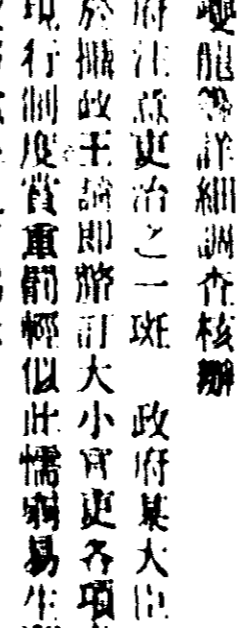 詳細調查核辦
府注意吏治之一斑　政府某大臣
於攝政王前即將訂大小官吏各項
現行制度從重罰輕似此懦弱易生